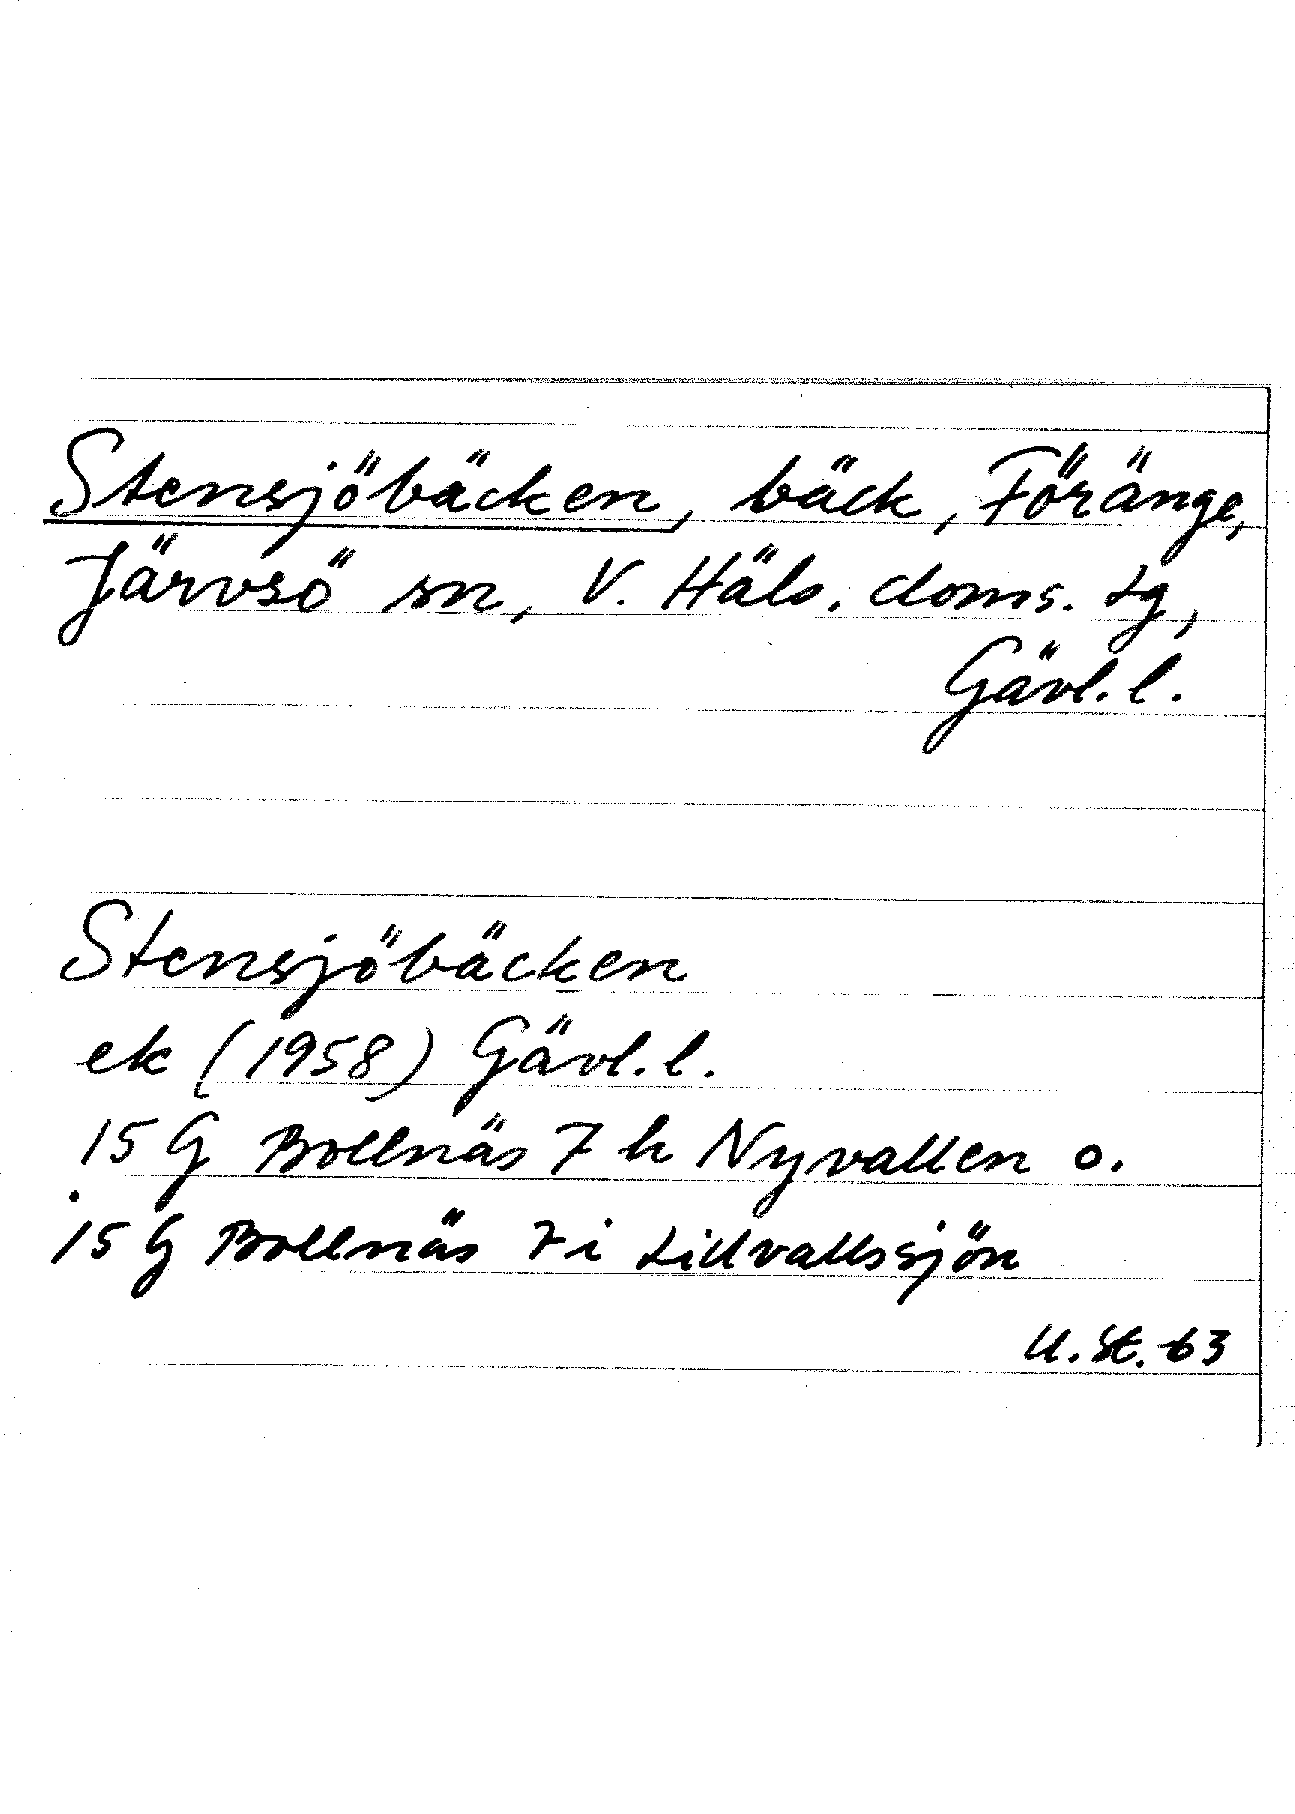 Stensjöbäcken, bäck, Föränge,
Järvsö sn, V. Häls. doms. tg,
Gävl. l.
Stensjöbäcken
ek (1958) Gävl. l.
15 G Bollnäs 7 h Nyvallen o.
15 G Bollnäs 7 i Lillvallssjön
U. St. 63